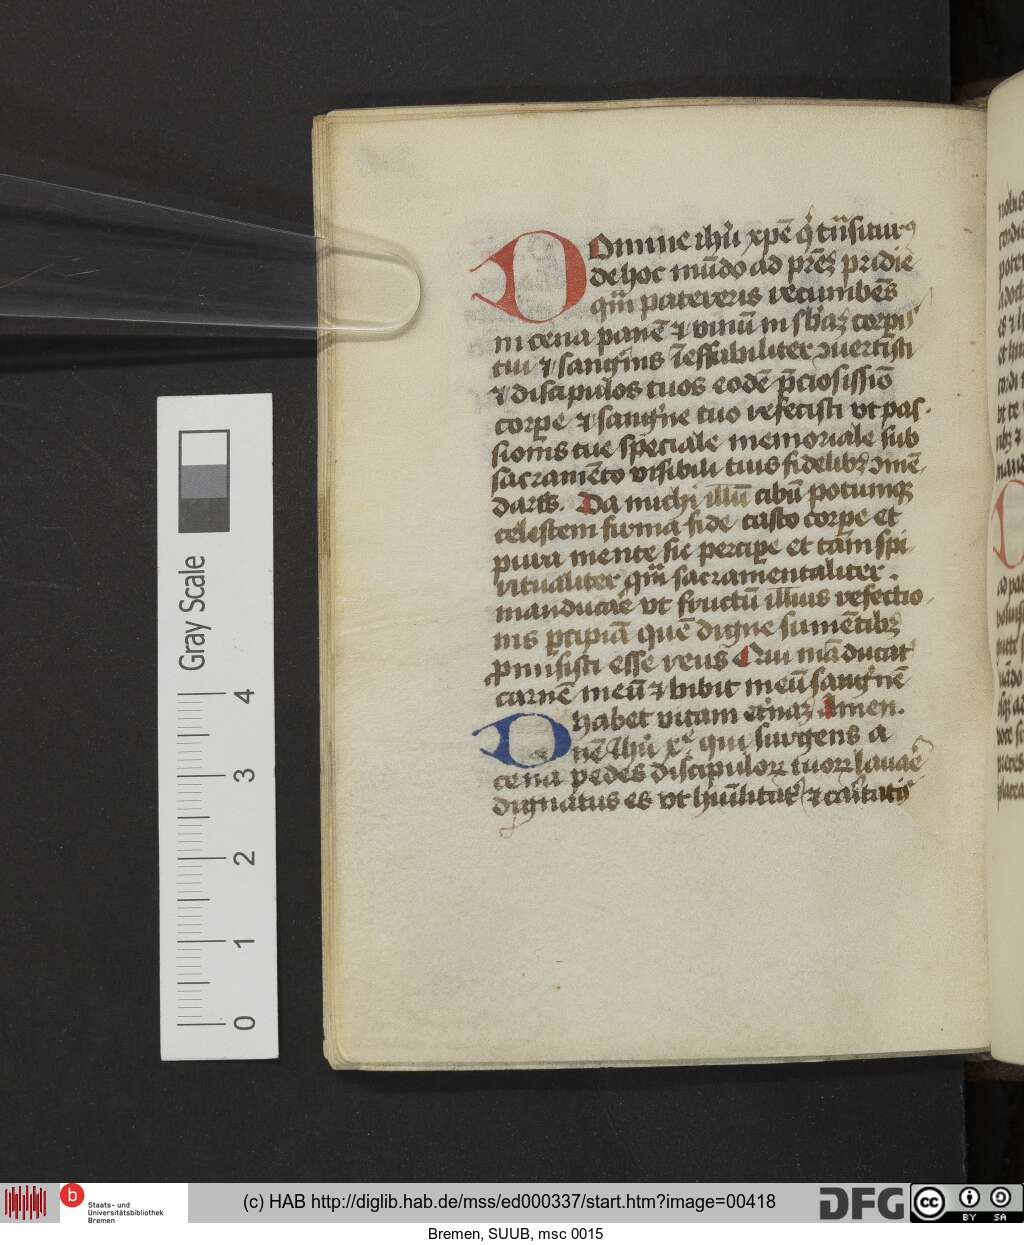 DOmine ihū xpē q̇ trāsitur9
de hoc mūdo ad prēs pridie
qm̄ patereris recumbēs
in cena panē ⁊ vinū in sbāz corpis
tui ⁊ sangīnis īeffabiliter ↄuertisti
⁊ discipulos tuos eodē p̄ciosissīo
corpe ⁊ sangīne tuo refecisti vt pas-
sionis tue speciale memoriale sub
sacramēto visibili tuis fidelibz ↄmē-
dares. Da michi illū cibū potumqz
celestem firma fide casto corpe et
pura mente sic percipe et tam spi-
ritualiter qm̄ sacramentaliter
manducare vt fructū illius refectio-
nis percipiā quē digne sumētibz
promisisti esse verus Qui māducat
carnē meū ⁊ bibit meū sangnē
habet vitam eternaz Amen.
Dnē Ihū xpe qui surgens a
cena pedes discipulorz tuorz lauare
dignatus es vt humilitatis ⁊ caritatis
Gray Scale
4
3
2
1
0
b
Staats- und
Universitätsbibliothek
Bremen
(c) HAB http://diglib.hab.de/mss/ed000337/start.htm?image=00418
DFG
cc
BY SA
Bremen, SUUB, msc 0015